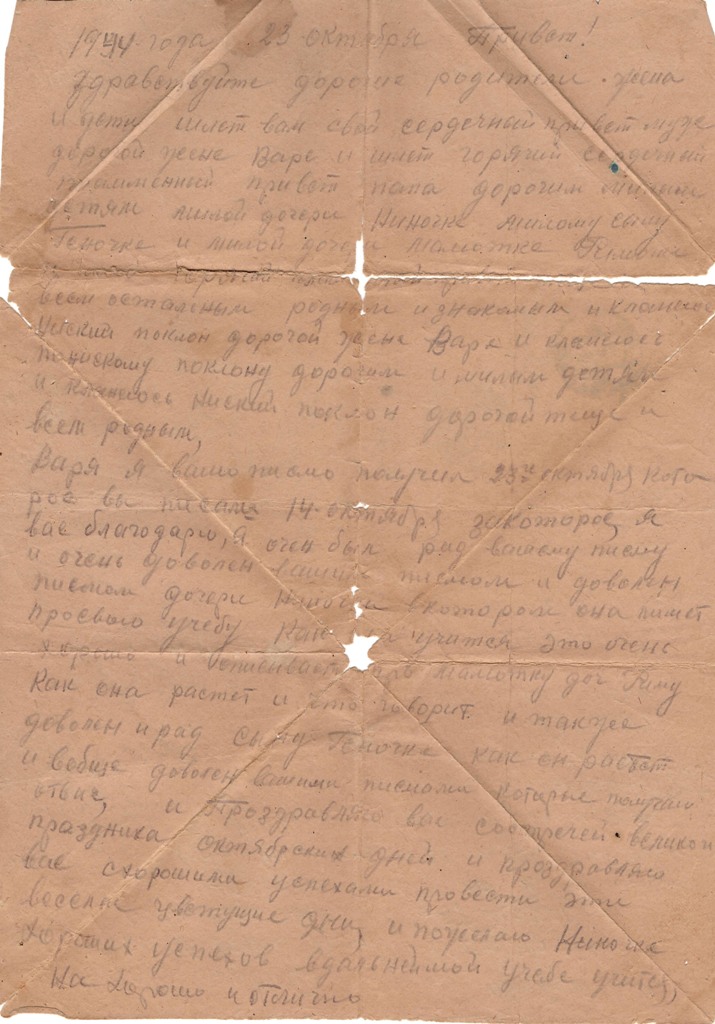 1944 года 23 октября Привет!
Здравствуйте дорогие родители жена
и дети шлет вам свой сердечный привет муж
дорогой жене Варе и шлет горячий сердечный
пламенный привет папа дорогим милым
детям милой дочери Ниночке милому сыну
Геночке и милой дочери малютке Римочке
горячий привет
всем остальным родным и знакомым и кланеюсь
ниский поклон дорогой жене Варе и кланеюсь
понискому поклону дорогим и милым детям
и кланеюсь ниский поклон дорогой теще и
всем родным,
Варя я вашо писмо получил 23го октября кото
рое вы писали 14 октября закоторое я
вас благодарю, а очен был рад вашему писму
и очень доволен вашим писмом и доволен
писмом дочери Ниночки вкотором она пишет
просвою учебу как учится это очень
хорошо и описывает про малютку доч Риму
как она растет и что говорит и так же
доволен и рад сыну Геночке как он растет
и вобще доволен вашими писмами которые получаю
отвас, и Проздравляю вас свстречей великого
праздника октябрьских дней и проздравляю
вас схорошими успехами провести эти
веселые цветущие дни, и пожелаю Ниночке
хороших успехов вдальнеймой учебе учится,
На хорошо и отлично